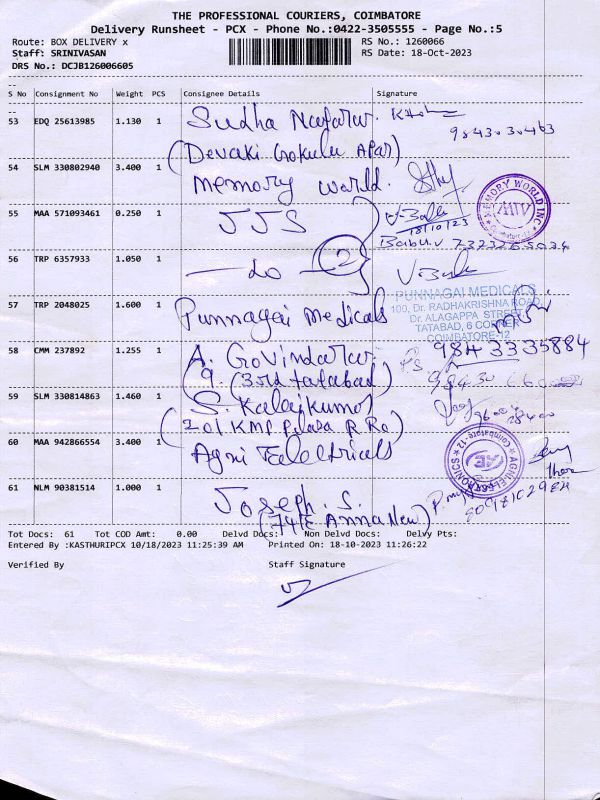 THE PROFESSIONAL COURIERS, COIMBATORE
Delivery Runsheet - PCX - Phone No.:0422-3505555 - Page No.:5
Route: BOX DELIVERY x
RS No.: 1260066
Staff: SRINIVASAN
RS Date: 18-Oct-2023
DRS No.: DCJB126006605
S No Consignment No Weight PCS Consignee Details Signature
53 EDQ 25613985 1.130 1 Sudha
(Devaki Gokulu Apar)
54 SLM 330802940 3.400 1 Memory World.
MEMORY WORLD INC
MW
55 MAA 571093461 0.250 1 JJS
18/10/23
Babu.V
56 TRP 6357933 1.050 1 — do — 2
57 TRP 2048025 1.600 1 Punnagai Medicals
PUNNAGAI MEDICALS
100, Dr. RADHAKRISHNA ROAD,
Dr. ALAGAPPA STREET
TATABAD, 6 CORNER
COIMBATORE-12
58 CMM 237892 1.255 1 A. Govindaraj.
9. (3rd tatabad)
9843335884
59 SLM 330814863 1.460 1 S. Kalaikumar
(201 KMP Plaza R Ro)
60 MAA 942866554 3.400 1 Agni Electricals
AGNI ELECTRONICS
Coimbatore-12
AE
61 NLM 90381514 1.000 1 Joseph. S.
(74/E Anna New)
Tot Docs: 61 Tot COD Amt: 0.00 Delvd Docs: Non Delvd Docs: Delvy Pts:
Entered By :KASTHURIPCX 10/18/2023 11:25:39 AM Printed On: 18-10-2023 11:26:22
Verified By Staff Signature